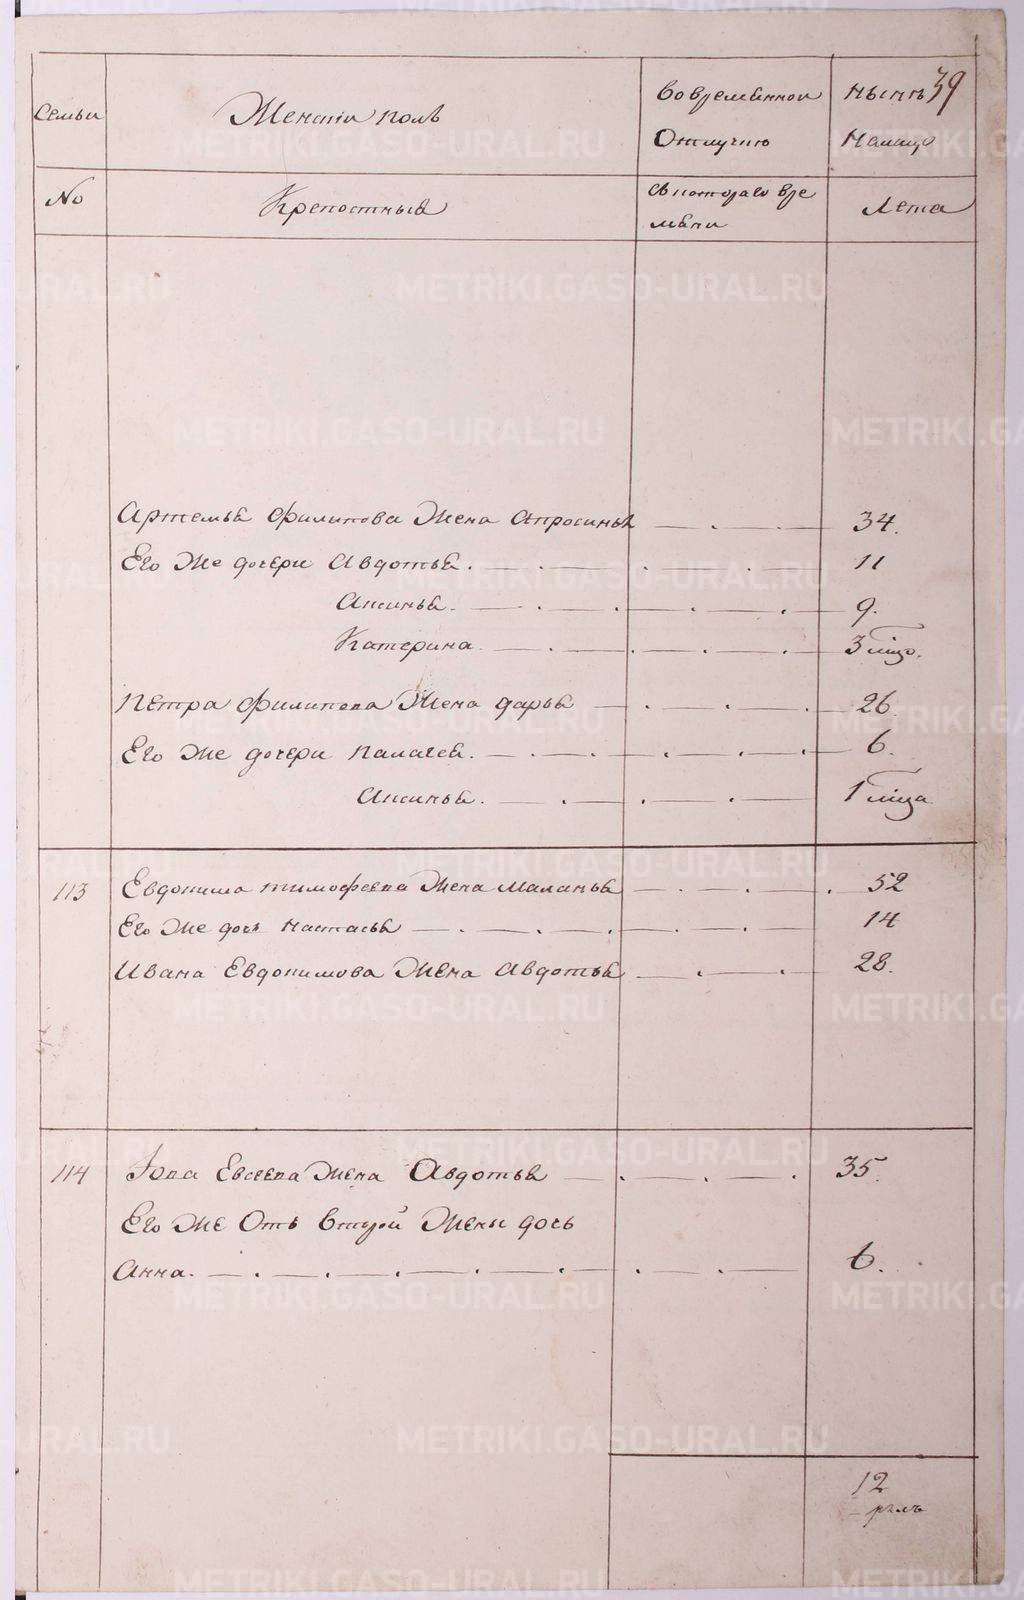 39
Семьи
Женскiй полъ
Во временной
Отлучкѣ
Нынѣ
Налицо
№
Крепостные
Съ котораго вре
мени
Лета
Артемья Филипова Жена Апросинья 34.
Его Же дочери Авдотья. 11
Аксинья. 9.
Катерина 3 мцо.
Петра Филипова Жена дарья 26.
Его Же дочери Палагея. 6.
Аксинья. 1 мца
113 Евдокима тимофеева Жена Маланья 52
Его Же дочь Настасья 14
Ивана Евдокимова Жена Авдотья 28.
114 Іова Евсеева Жена Авдотья 35.
Его Же Отъ Второй Жены дочь
Анна. 6.
12
METRIKI.GASO-URAL.RU